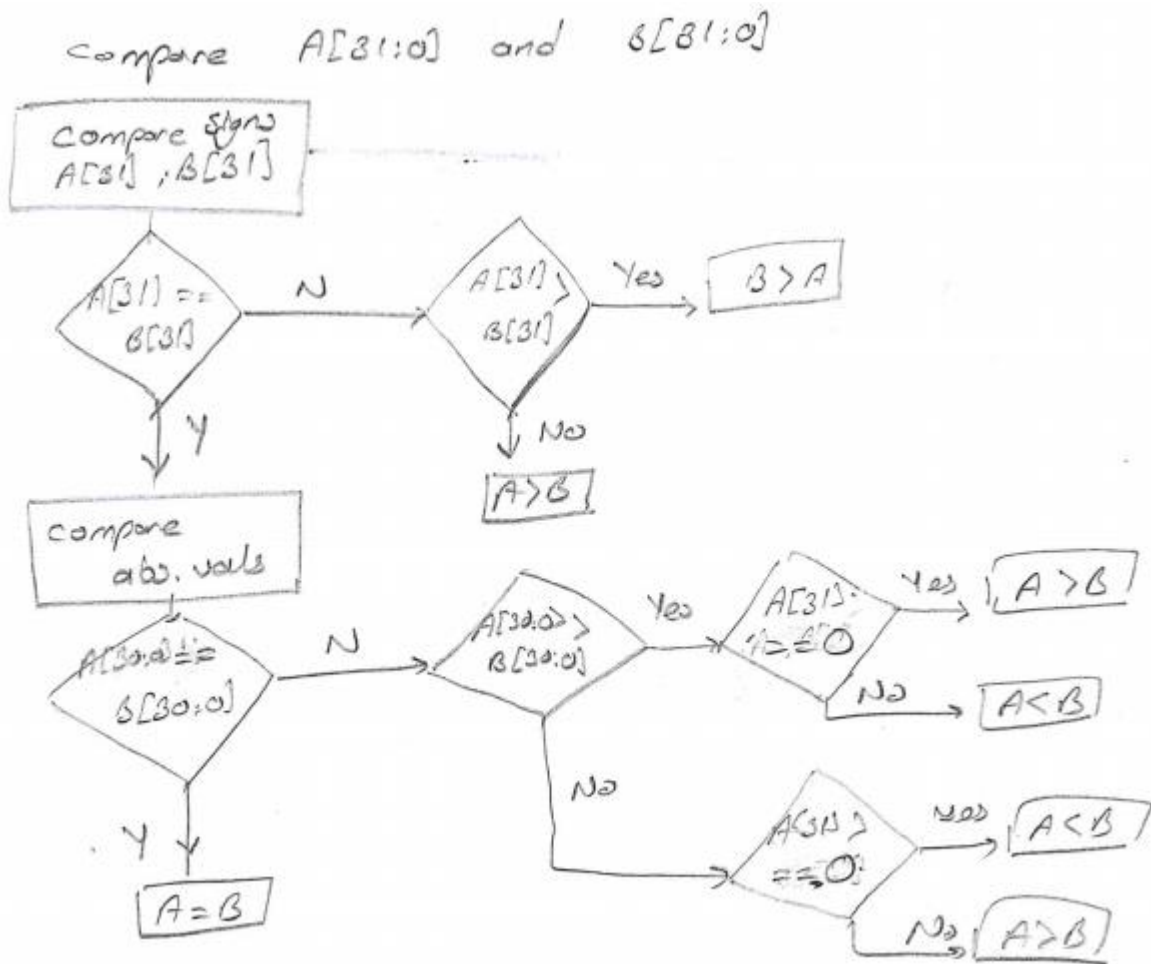 Compare A[31:0] and B[31:0]
Compare signs
A[31], B[31]
A[31] ==
B[31]
N
A[31] >
B[31]
Yes
B > A
Y
No
A>B
compare
abs. vals
A[30:0] ==
B[30:0]
N
A[30:0] >
B[30:0]
Yes
A[31]
== 0
Yes
A > B
No
A<B
No
A[31]
== 0
Yes
A<B
No
A>B
Y
A = B